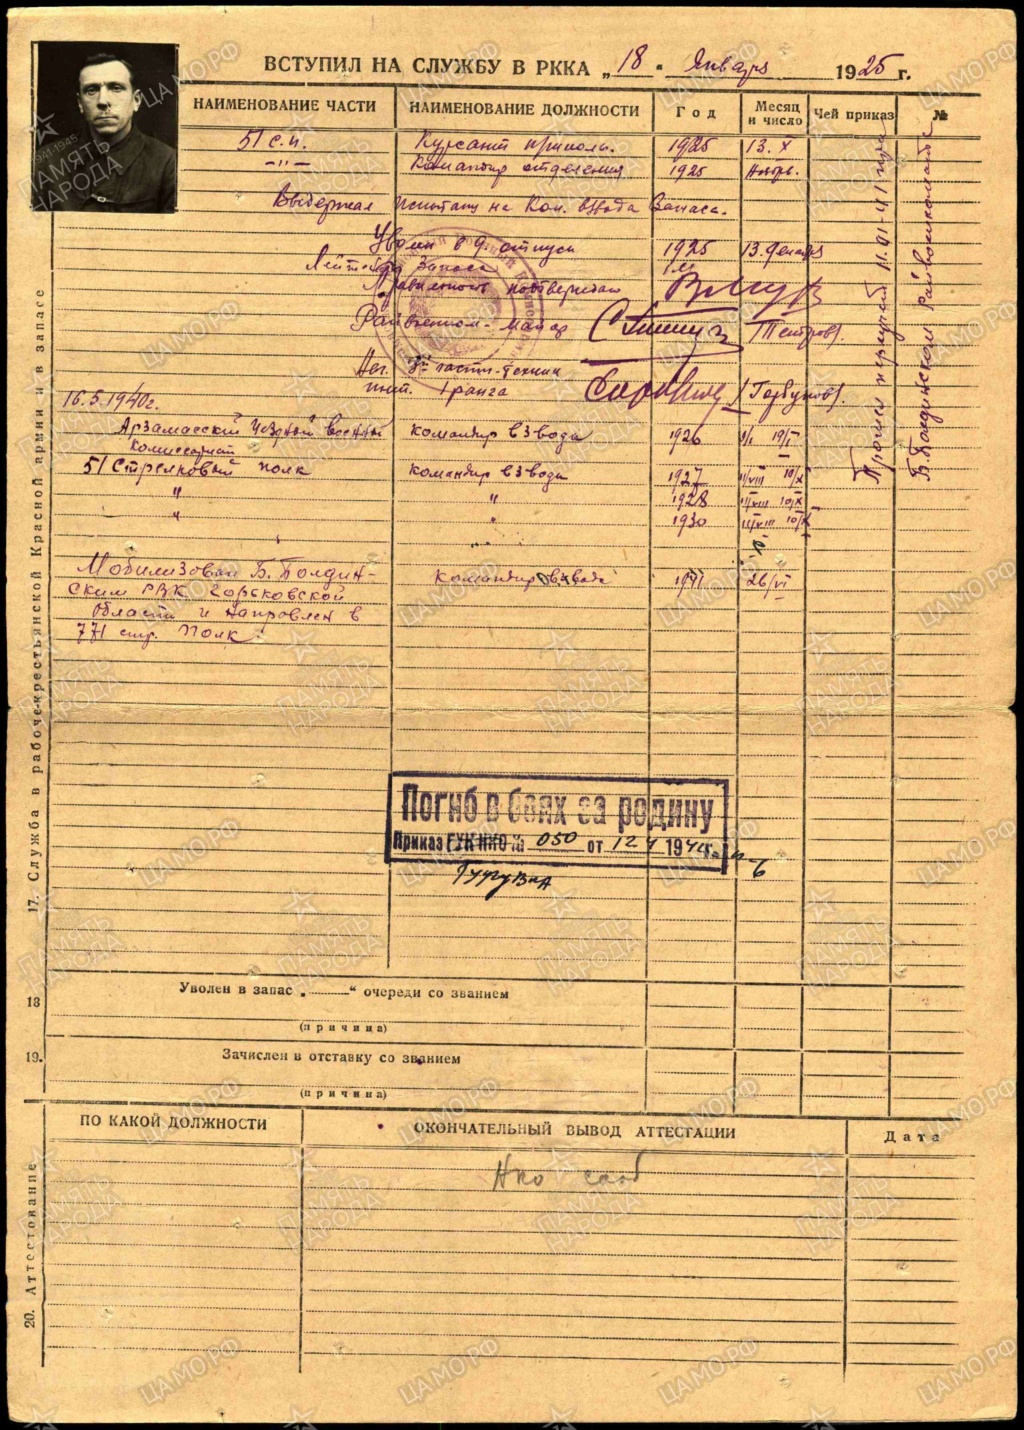 ВСТУПИЛ НА СЛУЖБУ В РККА „18 " Января 1925 г.
НАИМЕНОВАНИЕ ЧАСТИ НАИМЕНОВАНИЕ ДОЛЖНОСТИ Год Месяц и число Чей приказ №
51 с.п. Курсант 1925 13.X
—"— Командир отделения 1925 Ноябр.
Выдержал испытан на Ком. взвода Запаса.
Уволен в д. отпуск 1925 13 декабря
Запаса
Правильность подтверждаю
Райвоенком - майор Петров).
Нач. части - техник
инт. I ранга /Горбунов).
16.5.1940г.
Арзамасский Уездный военный командир взвода 1926
Комиссариат
51 Стрелковый полк командир взвода 1927 10/X
" " 1928 10/X
" " 1930 10/X
Мобилизован Б. Болдин- командир взвода 1941 26/VI
ским РВК Горьковской
области и направлен в
771 стр. Полк.
Прошел 41 года
Б. Болдинском Райвоенкомате
17. Служба в рабоче-крестьянской Красной армии и в запасе
Погиб в боях за родину
Приказ ГУК НКО № 050 от 12 4 194 г.
18 Уволен в запас „ “ очереди со званием
(причина)
19. Зачислен в отставку со званием
(причина)
20. Аттестование
ПО КАКОЙ ДОЛЖНОСТИ ОКОНЧАТЕЛЬНЫЙ ВЫВОД АТТЕСТАЦИИ Дата
1941-1945
ПАМЯТЬ НАРОДА
ЦАМО.РФ